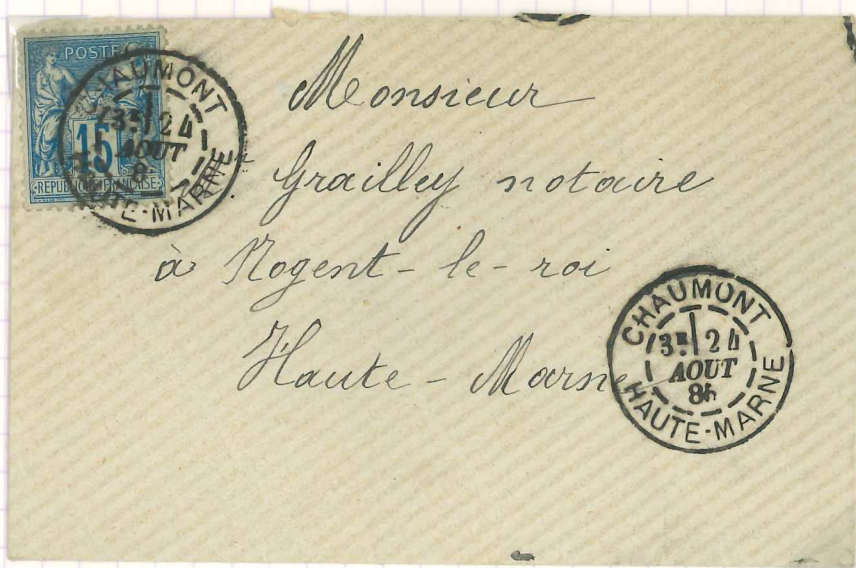 POSTES
15
REPUBLIQUE FRANÇAISE
CHAUMONT
3E 24
AOUT
8
HAUTE-MARNE
Monsieur
Grailley notaire
à Nogent-le-roi
Haute-Marne
CHAUMONT
3E 24
AOUT
85
HAUTE-MARNE